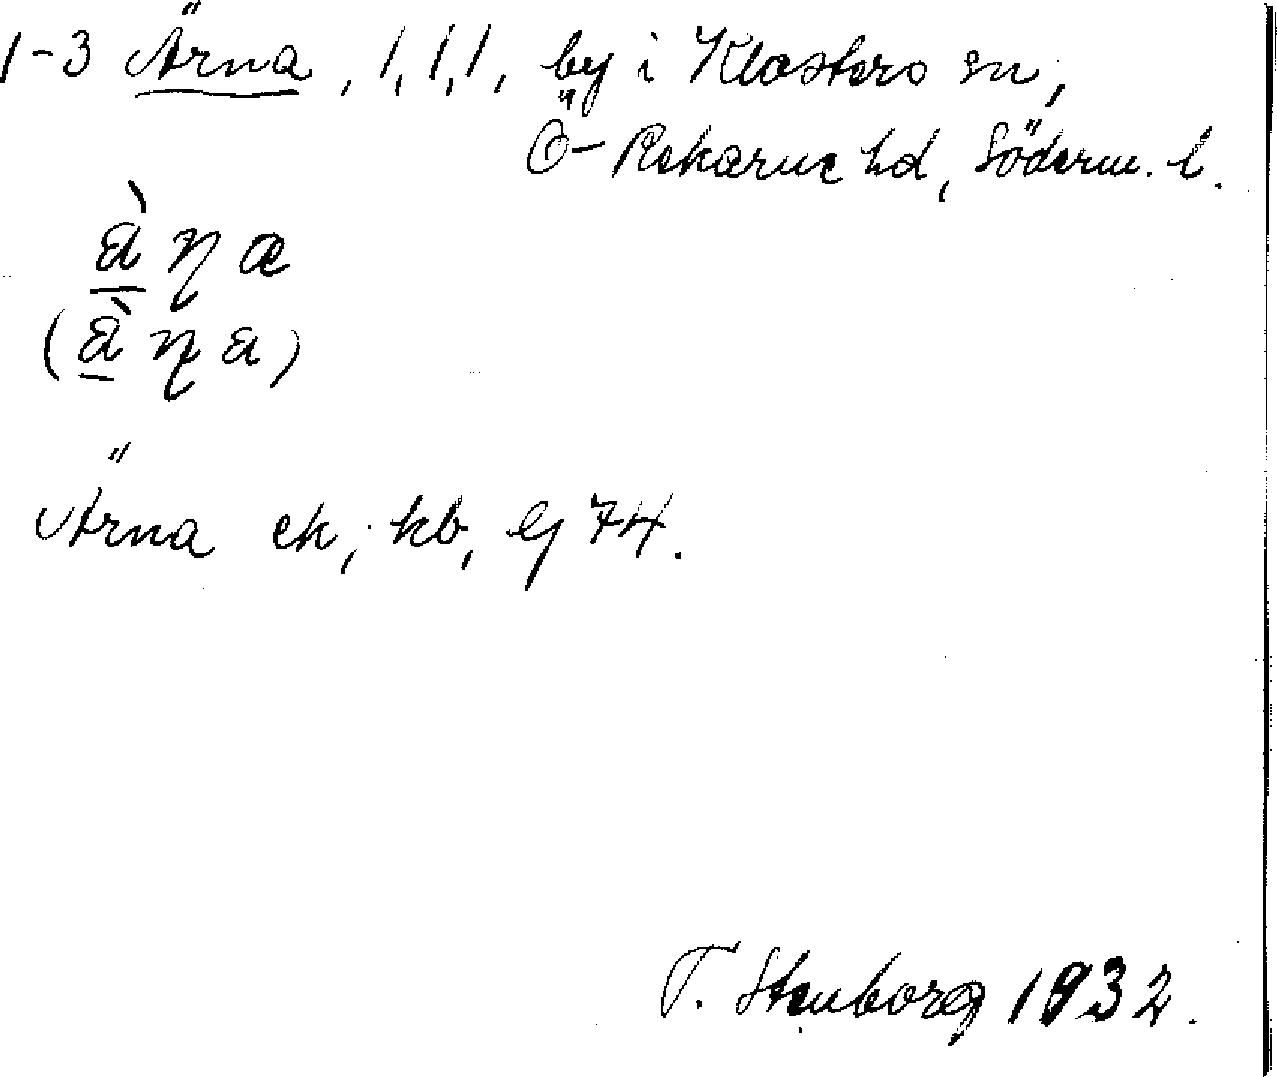 1-3 Ärna, 1, 1, 1, by i Klosters sn,
Ö-Rekarne hd, Söderm. l.
Ärna ek, kb, Gj 74.
T. Stenborg 1932.